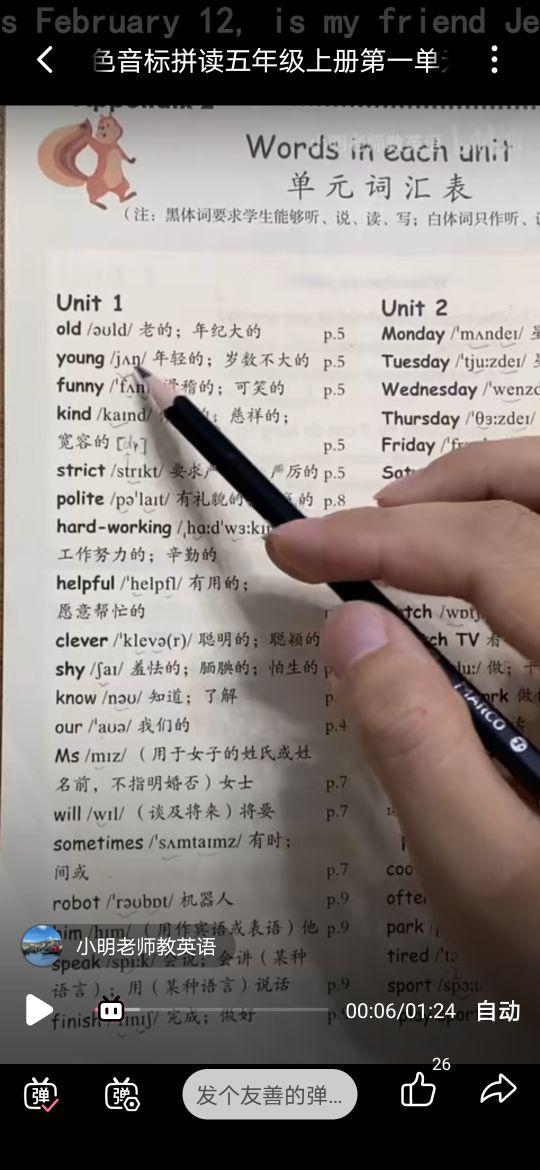 s February 12, is my friend Je
色音标拼读五年级上册第一单
Words in each unit
单元词汇表
（注：黑体词要求学生能够听、说、读、写；白体词只作听、
Unit 1
old /əʊld/ 老的；年纪大的 p.5
young /jʌŋ/ 年轻的；岁数不大的 p.5
funny 滑稽的；可笑的 p.5
kind /kaɪnd/ 慈祥的；
宽容的 p.5
strict /strɪkt/ 要求 严厉的 p.5
polite /pəˈlaɪt/ 有礼貌的 的 p.8
hard-working
工作努力的；辛勤的
helpful /ˈhelpfl/ 有用的；
愿意帮忙的
clever /ˈklevə(r)/ 聪明的；聪颖的
shy /ʃaɪ/ 羞怯的；腼腆的；怕生的
know /nəʊ/ 知道；了解
our /ˈaʊə/ 我们的 p.4
Ms /mɪz/ （用于女子的姓氏或姓
名前，不指明婚否）女士 p.7
will /wɪl/ （谈及将来）将要 p.7
sometimes /ˈsʌmtaɪmz/ 有时；
间或 p.7
robot /ˈrəʊbɒt/ 机器人 p.9
him /hɪm/ （用作宾语或表语）他 p.9
speak /spiːk/ 会说；会讲（某种
语言）；用（某种语言）说话 p.9
finish /ˈfɪnɪʃ/ 完成；做好
Unit 2
Monday /ˈmʌndeɪ/
Tuesday /ˈtjuːzdeɪ/
Wednesday /ˈwenzd
Thursday /ˈθɜːzdeɪ/
Friday
TV 看
park
tired
sport
MARCO
小明老师教英语
00:06/01:24 自动
弹
弹
发个友善的弹...
26